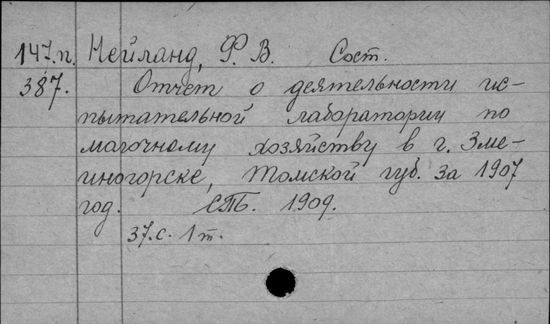 147.п. Нейланд, Ф. В. Сост.
387. Отчет о деятельности ис-
пытательной лаборатории по
молочному хозяйству в г. Зме-
иногорске, Томской губ. за 1907
год. СПБ. 1909.
37.с. 1 т.